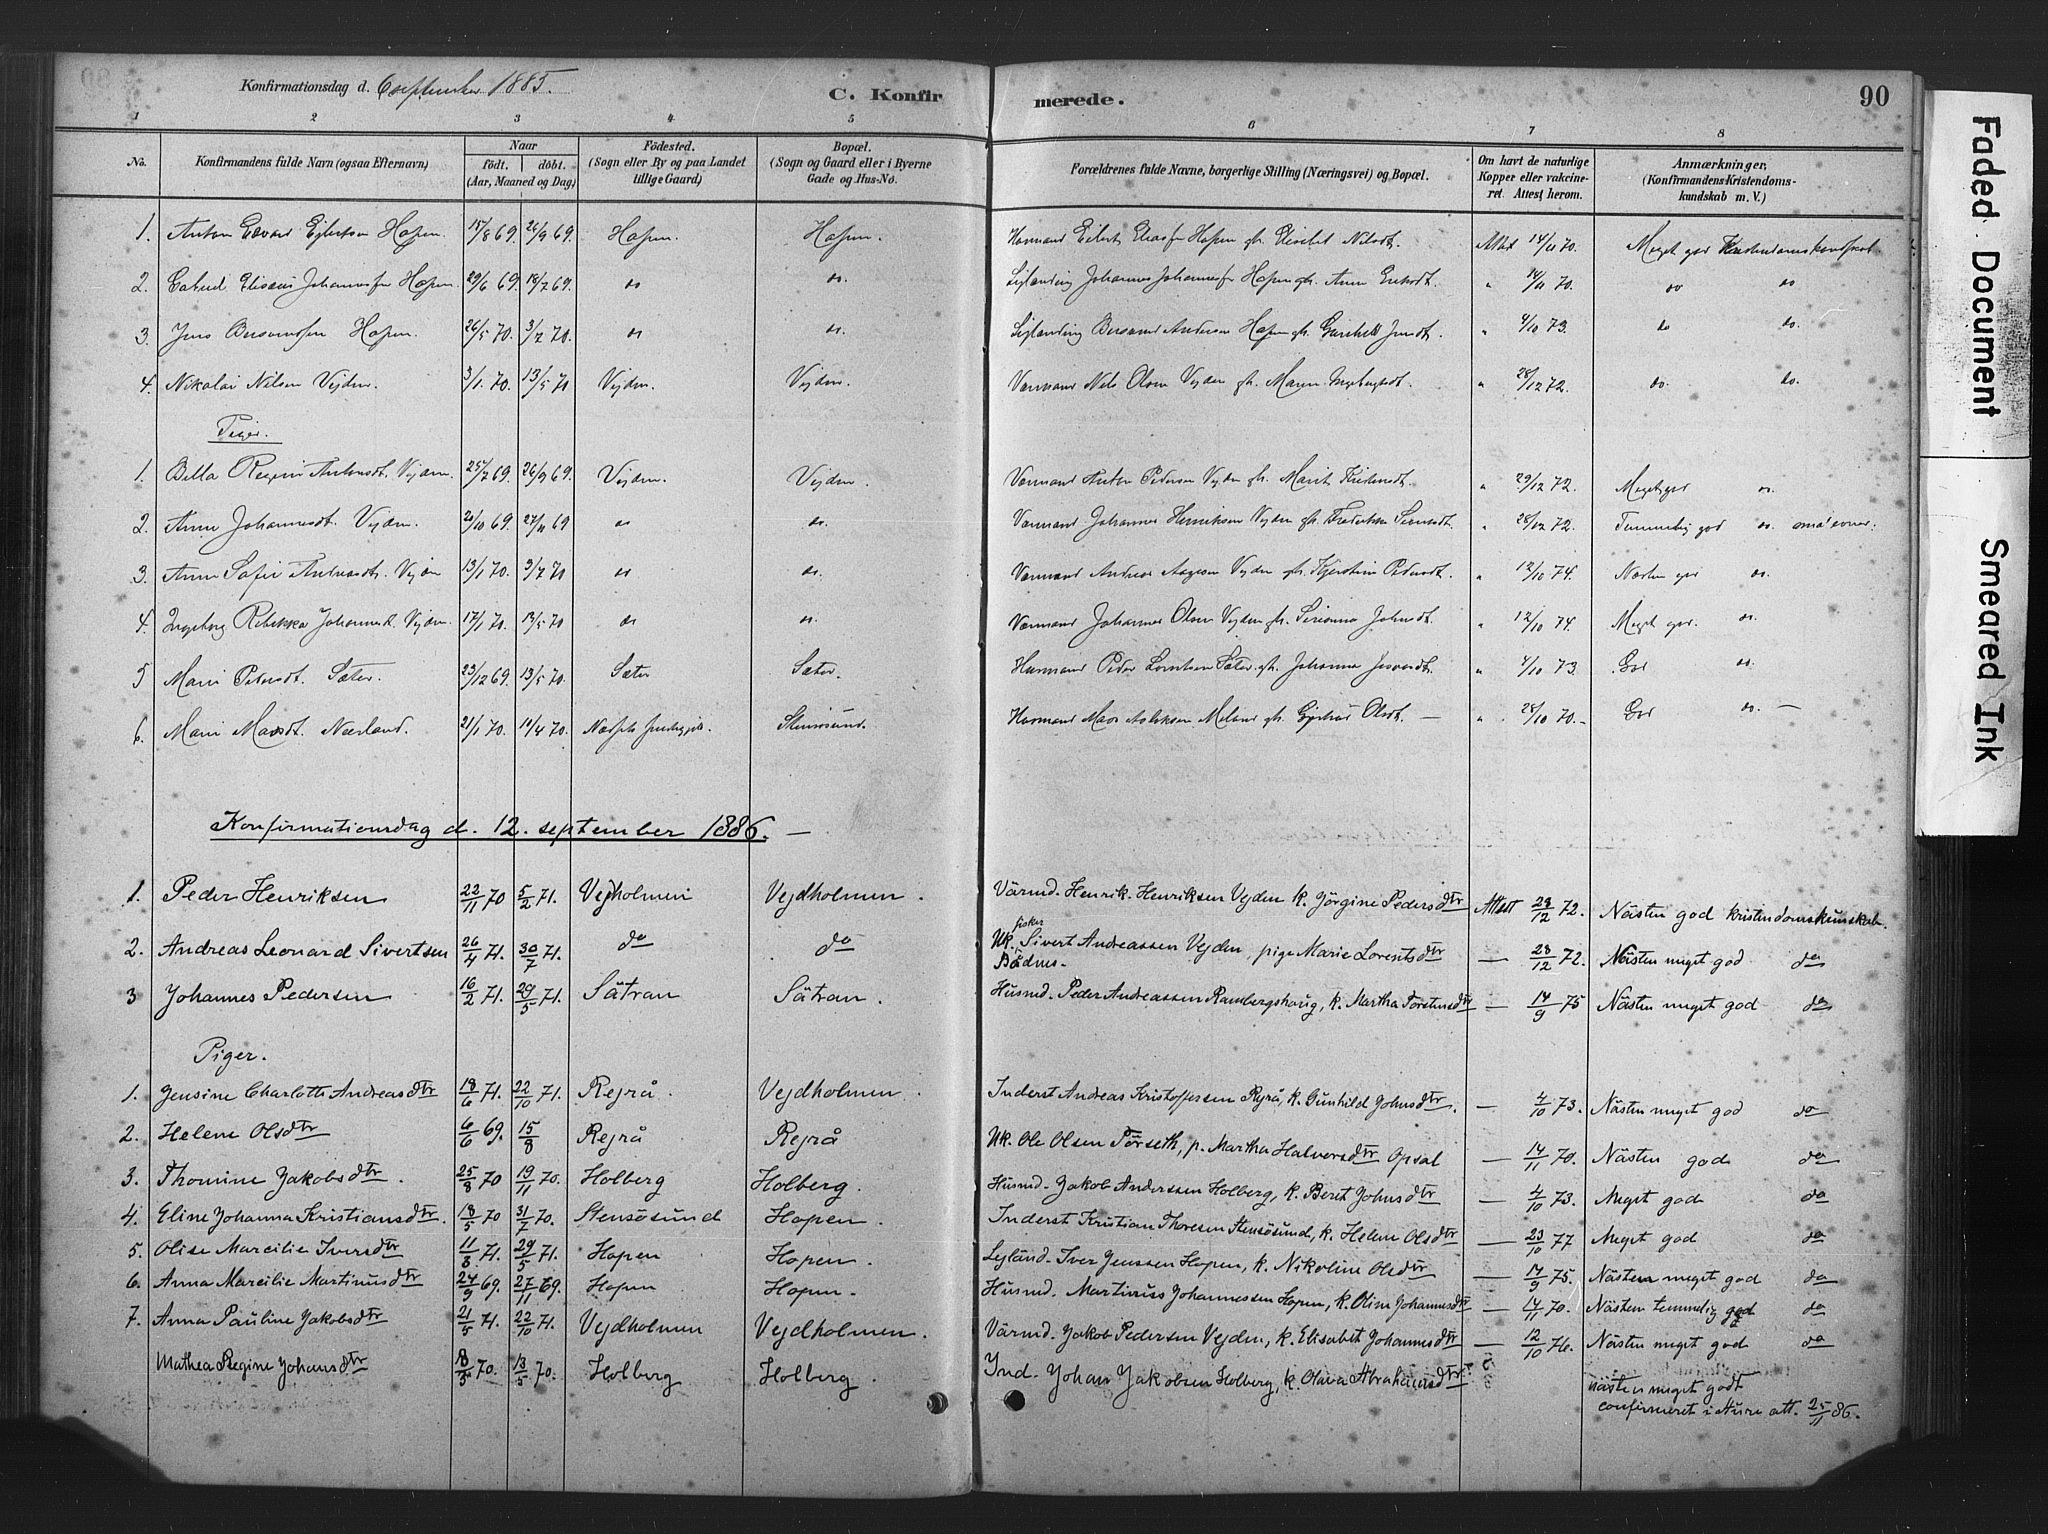 Konfirmationsdag d. 6 september 1885.
C. Konfirmerede.
90
1 2 3 4 5 6 7 8
No. Konfirmandens fulde Navn (ogsaa Efternavn) Naar født. døbt. (Aar, Maaned og Dag) Fødested. (Sogn eller By og paa Landet tillige Gaard) Bopæl. (Sogn og Gaard eller i Byerne Gade og Hus-No. Forældrenes fulde Navne, borgerlige Stilling (Næringsvei) og Bopæl. Om havt de naturlige Kopper eller vakcineret. Attest herom. Anmærkninger, (Konfirmandens Kristendomskundskab m. V.)
1. Anton Edvard Hopen 15/8 69. 26/9 69. Hopen. Hopen. Husmand Eilert Hopen Attest 14/11 70. Meget god Kristendomskundskab
2. Johannesen Hopen 29/6 69. 18/7 69. do do. Johannes Johannesen Hopen " 14/11 70. do do
3. Jens Hopen. 26/5 70. 3/7 70. do do. Andersen Hopen " 4/10 73. do do.
4. Nikolai Nilsen Vejden. 3/1 70. 13/5 70 Vejden. Vejden. Vaarmand Nils Olsen Vejden " 28/12 72. do. do.
Piger.
1. Regine Vejden. 25/7 69. 26/9 69. Vejden. Vejden. Anton Pedersen Vejden Marit " 29/12 72. Meget god do.
2. Anne Johannesdt. Vejden. 20/10 69. 27/11 69 do do. Johannes Henriksen Vejden " 28/12 72. Temmelig god do. små evner.
3. Anne Sofie Vejden 13/1 70. 3/7 70 do do. Andreas Vejden Pedersdt. " 12/10 74. Næsten god do.
4. Ingeborg Rebekka Johannesdt. Vejden. 17/1 70. 13/5 70 do do. Johannes Olsen Vejden " 12/10 74. Meget god. do.
5 Marie Pedersdt. Sæter. 23/12 69. 13/5 70. Sæter Sæter. Husmand Peder Lorentsen Sæter. Johanna " 4/10 73. God do.
6. Marie Nærland. 21/1 70. 14/4 70. Stensösund. Husmand Olsdt. — " 28/10 70. – God do. —
Konfirmationsdag d. 12. september 1886. —
1. Peder Henriksen 22/11 70 5/2 71. Vejholmen Vejdholmen. Värmd. Henrik Henriksen Vejden k. Jörgine Pedersdtr Attest 28/12 72. Nästen god kristendomskunskab.
2. Andreas Leonard Sivertsen 26/4 71. 30/7 71. do do. Uk. fisker Sivert Andreassen Vejden, pige Marie Lorentsdtr — 28/12 72. Nästen meget god do
Bådnes.
3 Johannes Pedersen 16/2 71. 29/5 71. Sätran Sätran. Husmd. Peder Andreassen Rambergshaug, k. Martha Torstensdtr — 14/9 75 Nästen meget god do
Piger.
1. Jensine Charlotte Andreasdtr 18/6 71. 22/10 71. Rejrå Vejdholmen. Inderst Andreas Kristoffessen Rejrå, k. Gunhild Johnsdtr. — 4/10 73. Nästen meget god do
2. Helene Olsdtr 6/6 69. 15/8 Rejrå Rejrå Uk. Ole Olsen Törseth, p. Martha Halversdtr Opsal — 14/11 70. Nästen god do
3. Thomine Jakobsdtr. 25/8 70 19/11 70. Holberg Holberg. Husmd. Jakob Anderssen Holberg, k. Berit Johnsdtr — 4/10 73. Meget god do
4. Eline Johanna Kristiansdtr. 18/5 70 31/7 70. Stensösund Hopen. Inderst Kristian Thoresen Stensösund, k. Helene Olsdtr — 23/10 77 Meget god do
5. Olise Marcilie Iversdtr 11/3 71. 29/5 71. Hopen Hopen. Leiländ. Iver Jenssen Hopen, k. Nikoline Olsdtr — 14/9 75. Nästen meget god do
6. Anna Marcilie Martinusdtr 24/9 69. 27/11 69. Hopen Hopen. Husmd. Martinus Johannessen Hopen, k. Oline Johannesdtr — 14/11 70. Nästen temmelig god do
7. Anna Pauline Jakobsdtr 21/5 71. 22/10 71. Vejdholmen Vejdholmen. Värmd. Jakob Pedersen Vejden, k. Elisabet Johannesdtr — 12/10 76. Nästen meget god do
Mathea Regine Johansdtr 8/3 70. 13/5 70. Holberg Holberg. Ind. Johan Jakobsen Holberg, k. Olava Abrahamsdtr
nästen meget godt
confirmeret i Aure att. 25/11 86.
Faded Document
Smeared Ink